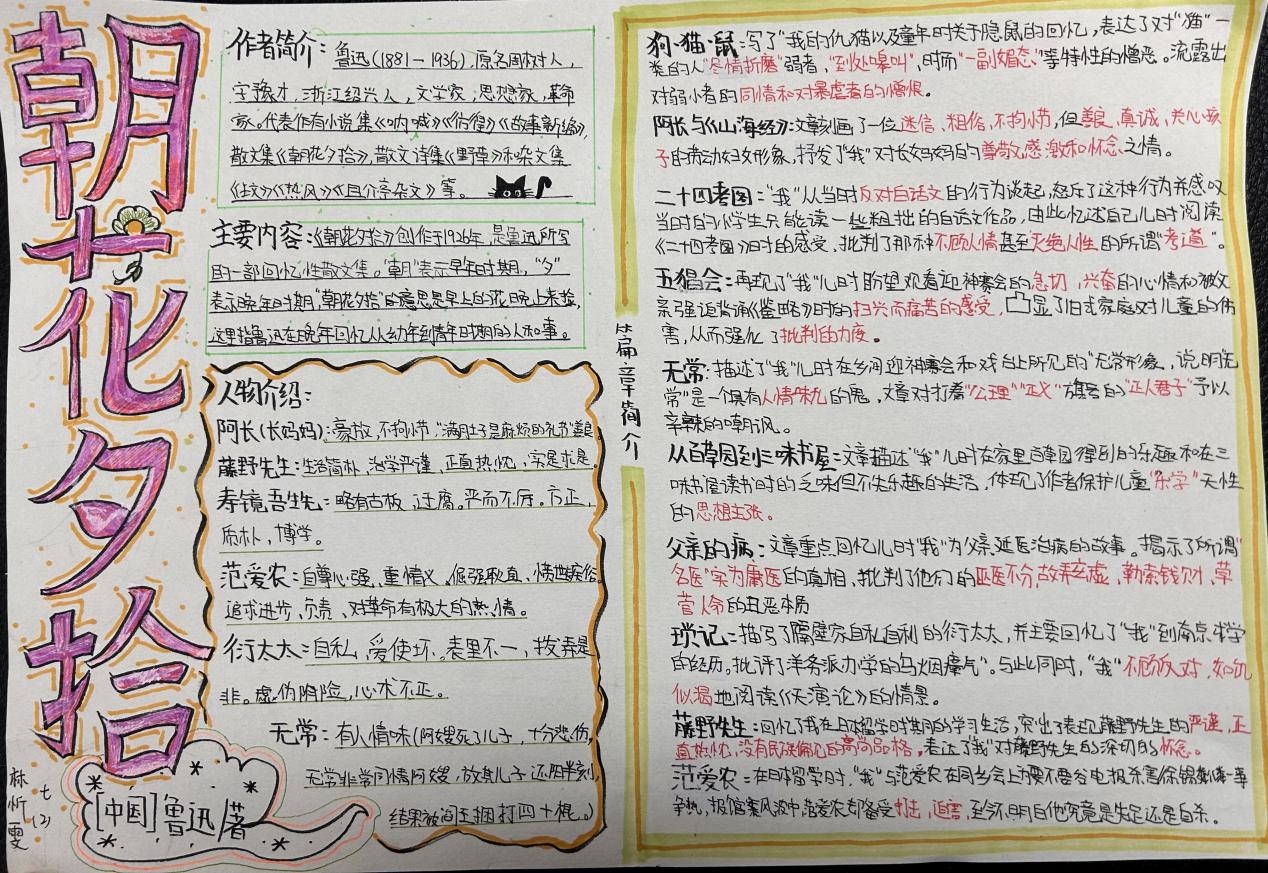 朝花夕拾
[中国]鲁迅/著
林忻雯
七(2)
作者简介：鲁迅(1881—1936),原名周树人，
字豫才，浙江绍兴人，文学家，思想家，革命
家。代表作有小说集《呐喊》《彷徨》《故事新编》,
散文集《朝花夕拾》,散文诗集《野草》和杂文集
《坟》《热风》《且介亭杂文》等。
主要内容：《朝花夕拾》创作于1926年，是鲁迅所写
的一部回忆性散文集。"朝"表示早年时期，"夕"
表示晚年时期"朝花夕拾"的意思是早上的花晚上来捡，
这里指鲁迅在晚年回忆从幼年到青年时期的人和事。
人物介绍：
阿长(长妈妈)：豪放，不拘小节，"满肚子是麻烦的礼节"善良
藤野先生：生活简朴，治学严谨，正直热忱，实是求是。
寿镜吾先生：略有古板，迂腐。严而不厉。方正，
质朴，博学。
范爱农：自尊心强，重情义，倔强耿直、愤世嫉俗
追求进步、负责、对革命有极大的热情。
衍太太：自私，爱使坏。表里不一，拨弄是
非。虚伪阴险，心术不正。
无常：有人情味(阿嫂死了儿子，十分悲伤，
无常非常同情阿嫂，放其儿子还阳半刻，
结果被阎王捆打四十棍。)
篇章简介
狗·猫·鼠：写了"我的仇猫以及童年时关于隐鼠的回忆，表达了对"猫"一
类的人"尽情折磨"弱者，"到处嗥叫"、时而"一副媚态"等特性的憎恶。流露出
对弱小者的同情和对暴虐者的憎恨。
阿长与《山海经》：文章刻画了一位迷信、粗俗、不拘小节，但善良、真诚、关心孩
子的劳动妇女形象，抒发了"我"对长妈妈的尊敬感激和怀念之情。
二十四孝图："我"从当时反对白话文的行为谈起，怒斥了这种行为并感叹
当时的小学生只能读一些粗拙的白话文作品，由此忆述自己儿时阅读
《二十四孝图》时的感受、批判了那种不顾人情甚至灭绝人性的所谓"孝道"。
五猖会：再现了"我"儿时盼望观看迎神赛会的急切，兴奋的心情和被父
亲强迫背诵《鉴略》时的扫兴而痛苦的感受，凸显了旧式家庭对儿童的伤
害，从而强化了批判的力度。
无常：描述了"我"儿时在乡间迎神赛会和戏台上所见的"无常"形象，说明"无
常"是一个具有人情味儿的鬼，文章对打着"公理""正义"旗号的"正人君子"予以
辛辣的嘲讽。
从百草园到三味书屋：文章描述"我"儿时在家里百草园得到的乐趣和在三
味书屋读书时的乏味但不失乐趣的生活，体现了作者保护儿童"乐学"天性
的思想主张。
父亲的病：文章重点回忆儿时"我"为父亲延医治病的故事。揭示了所谓"
名医"实为庸医的真相，批判了他们的巫医不分，故弄玄虚、勒索钱财、草
菅人命的丑恶本质
琐记：描写了隔壁家自私自利的衍太太，并主要回忆了"我"到南京求学
的经历，批评了洋务派办学的乌烟瘴气"。与此同时，"我"不顾反对，如饥
似渴地阅读《天演论》的情景。
藤野先生：回忆了我在日本留学时其期的学习生活，突出了表现藤野先生的严谨，正
直热忱，没有民族偏见的高尚品格，表达了"我"对藤野先生的深切的怀念。
范爱农：在日本留学时，"我"与范爱农在同乡会上为要不要发电报杀害徐锡麟一事
争执，
至今不明白他究竟是失足还是自杀。